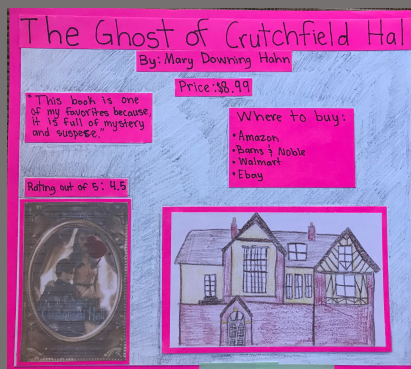 The Ghost of Crutchfield Hal
By: Mary Downing Hahn
Price: $6.99
"This book is one
of my favorites because,
it is full of mystery
and suspese."
Where to buy:
• Amazon
• Barns & Noble
• Walmart
• Ebay
Rating out of 5: 4.5